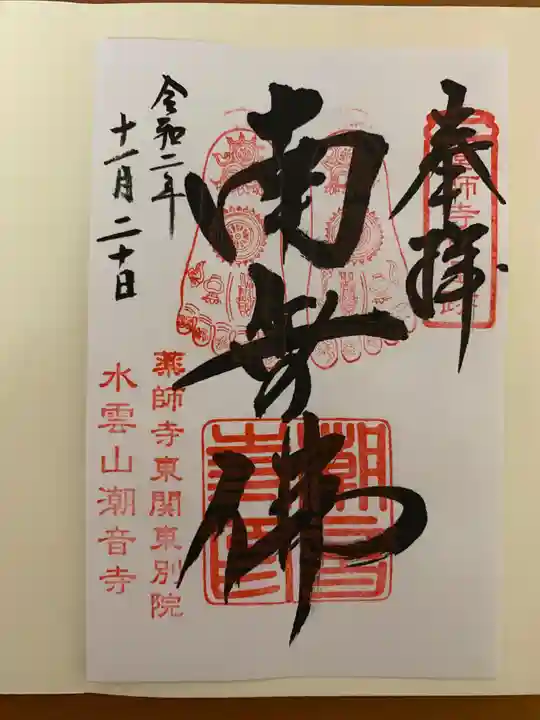 奉拝
南無佛
令和二年
十一月二十日
薬師寺東関東別院
水雲山潮音寺